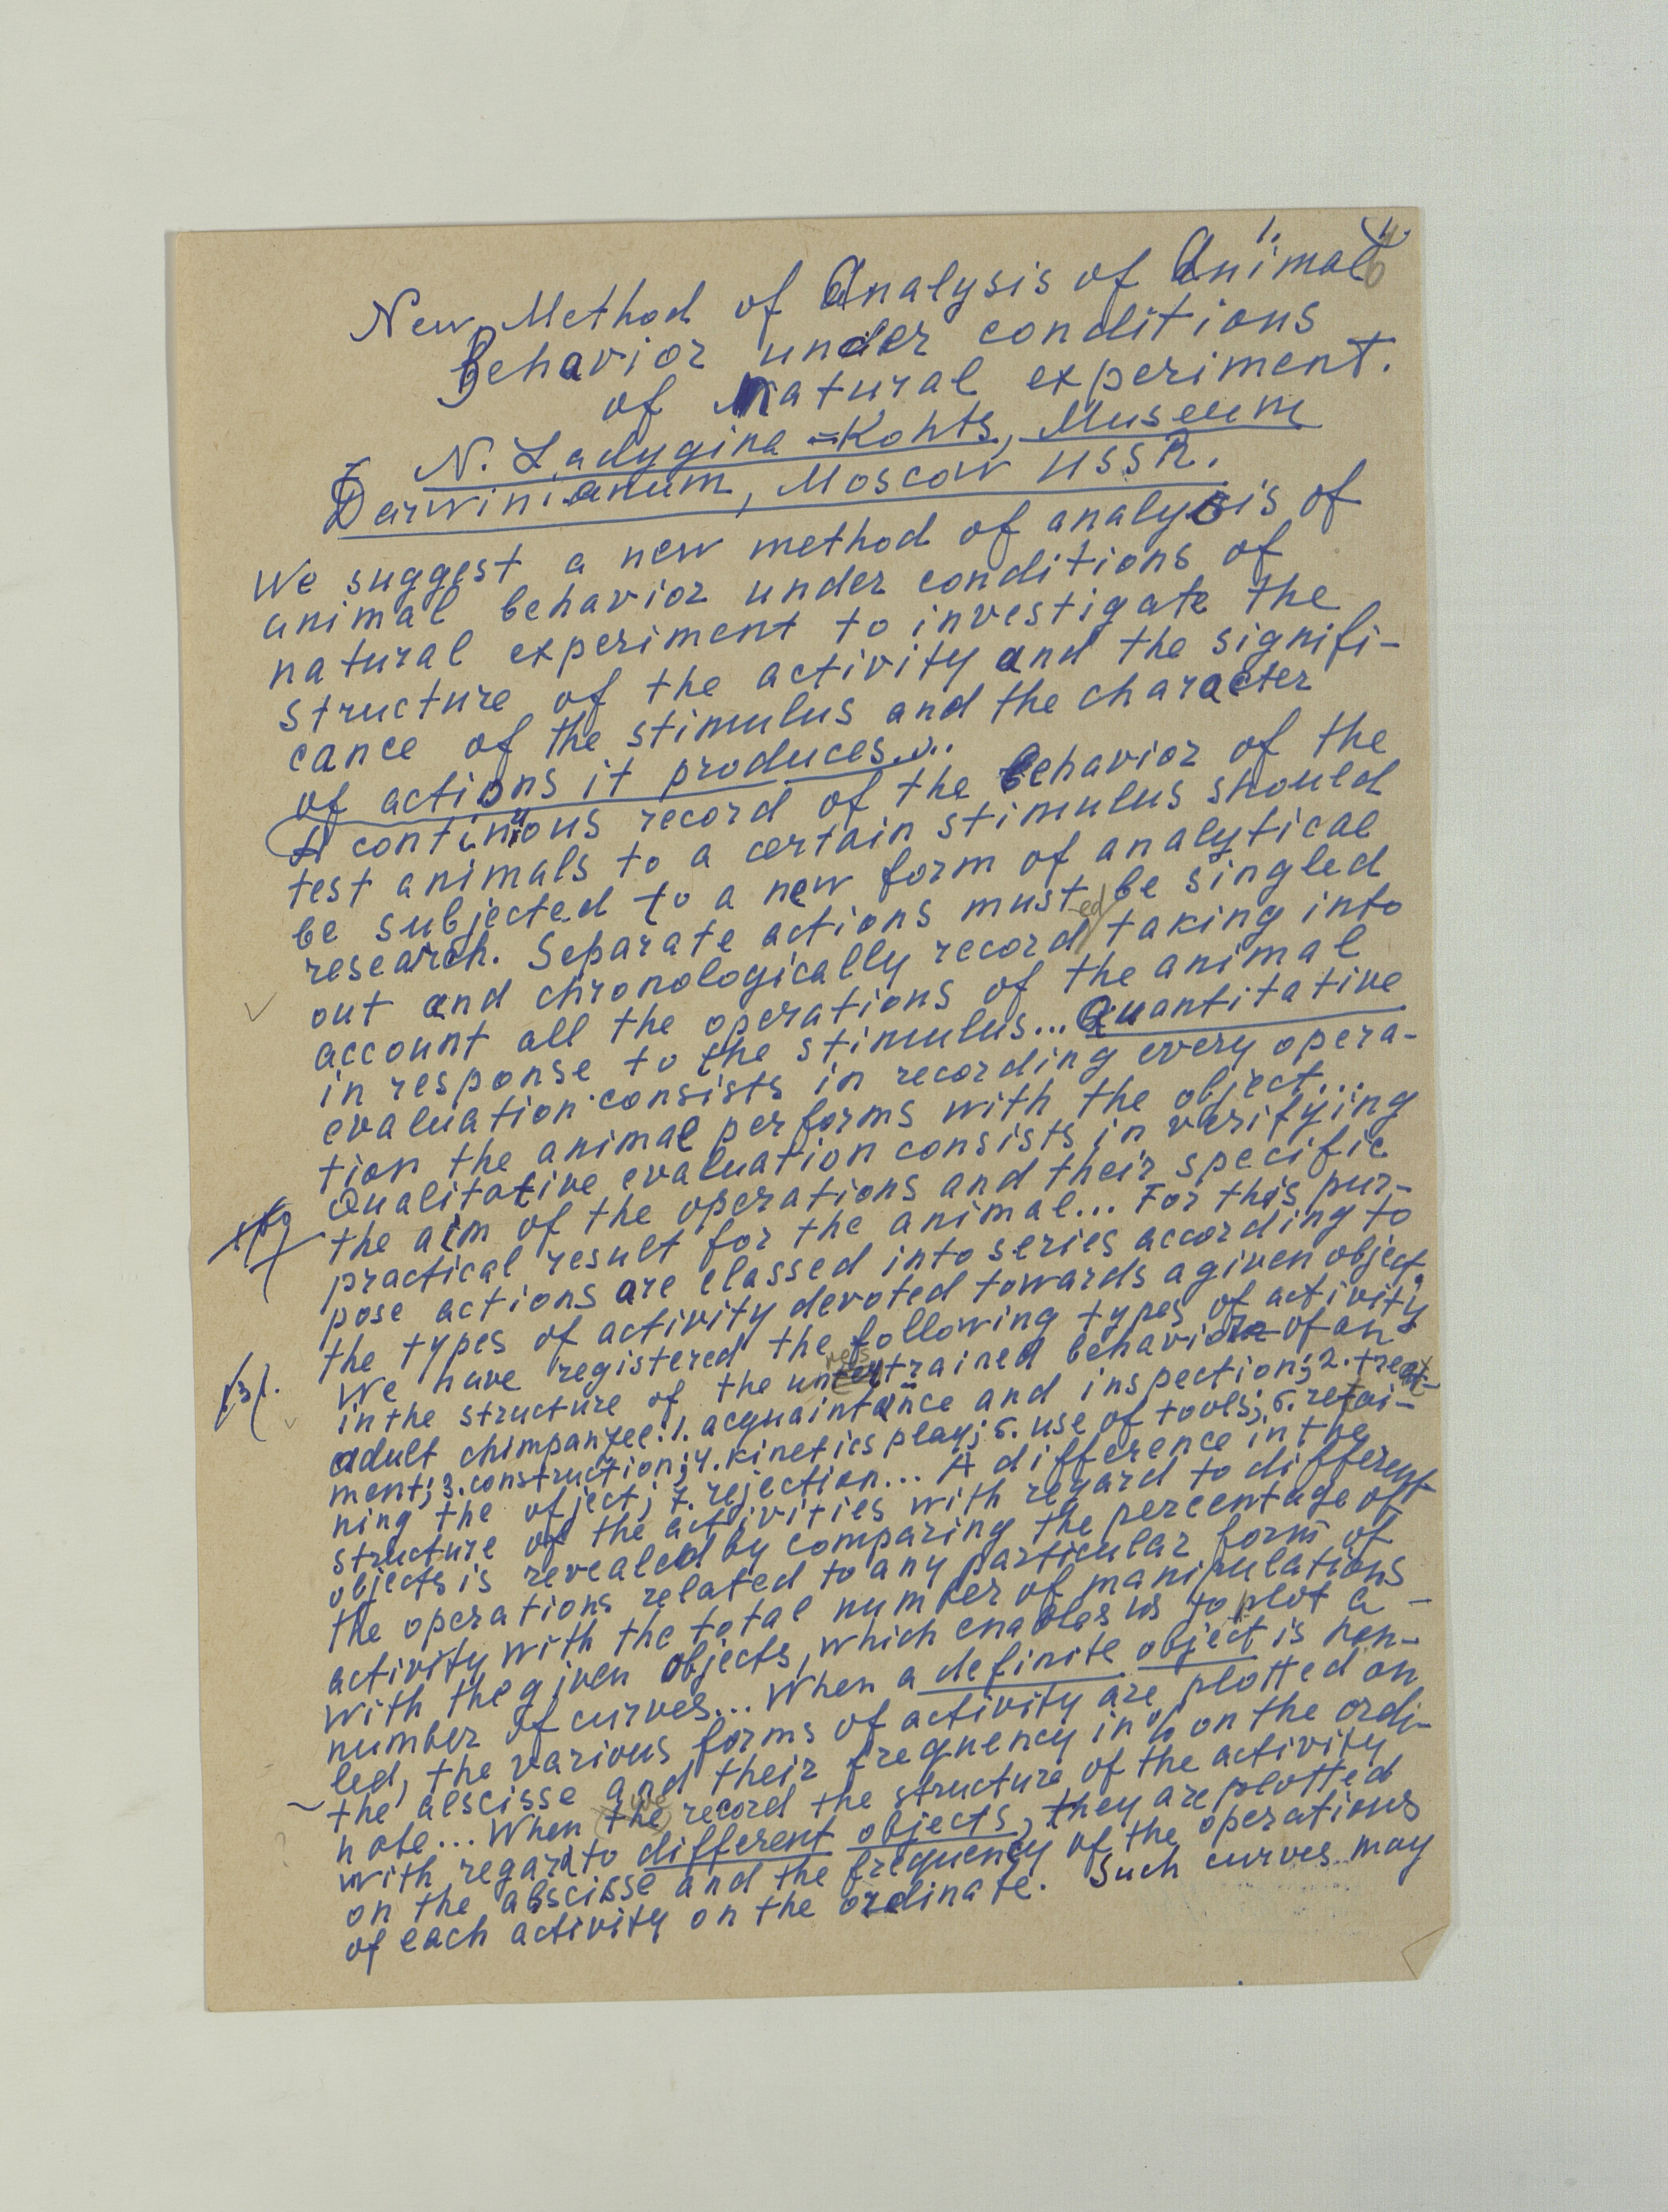 1.
New Method of Analysis of Animal
Behavior under conditions
of natural experiment.
N. Ladygina-Kohts, Museum
Darwinianum, Moscow USSR.
We suggest a new method of analysis of
animal behavior under conditions of
natural experiment to investigate the
structure of the activity and the signifi-
cance of the stimulus and the character
of actions it produces...
A continuous record of the behavior of the
test animals to a certain stimulus should
be subjected to a new form of analytical
research. Separate actions must be singled
out and chronologically recorded taking into
account all the operations of the animal
in response to the stimulus... Quantitative
evaluation consists in recording every opera-
tion the animal performs with the object...
Qualitative evaluation consists in verifying
the aim of the operations and their specific
practical result for the animal... For this pur-
pose actions are classed into series according to
the types of activity devoted towards a given object.
We have registered the following types of activity
in the structure of the unrestrained behavior of an
adult chimpanzee: 1. acquaintance and inspection; 2. treat-
ment; 3. construction; 4. kinetics play; 5. use of tools; 6. retai-
ning the object; 7. rejection... A difference in the
structure of the activities with regard to different
objects is revealed by comparing the percentage of
the operations related to any particular form of
activity with the total number of manipulations
with the given objects, which enables us to plot a
number of curves... When a definite object is hen-
led, the various forms of activity are plotted on
the abscisse and their frequency in % on the ordi-
note... When we record the structure of the activity
with regard to different objects, they are plotted
on the abscisse and the frequency of the operations
of each activity on the ordinate. Such curves may